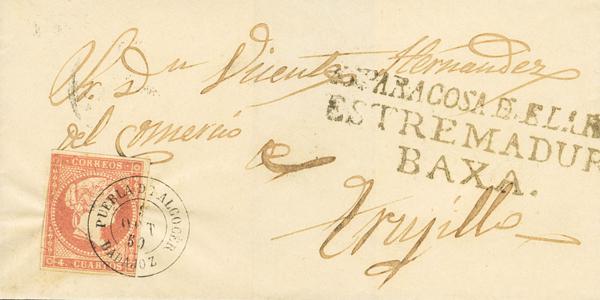 Sr. Dn Vicente Hernandez
del comercio
de
Trujillo
ESPARAGOSA D. E. LAR
ESTREMADUR
BAXA.
CORREOS
4. CUARTOS
PUEBLA DE ALCOCER
OCT
BADAJOZ